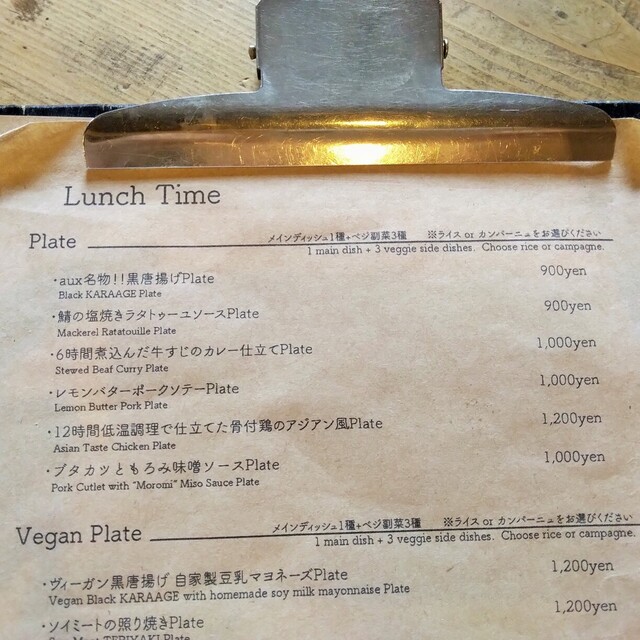 Lunch Time
Plate
メインディッシュ1種+ベジ副菜3種 ※ライス or カンパーニュをお選びください
1 main dish + 3 veggie side dishes. Choose rice or campagne.
・aux名物!!黒唐揚げPlate 900yen
Black KARAAGE Plate
・鯖の塩焼きラタトゥーユソースPlate 900yen
Mackerel Ratatouille Plate
・6時間煮込んだ牛すじのカレー仕立てPlate 1,000yen
Stewed Beaf Curry Plate
・レモンバターポークソテーPlate 1,000yen
Lemon Butter Pork Plate
・12時間低温調理で仕立てた骨付鶏のアジアン風Plate 1,200yen
Asian Taste Chicken Plate
・ブタカツともろみ味噌ソースPlate 1,000yen
Pork Cutlet with "Moromi" Miso Sauce Plate
Vegan Plate
メインディッシュ1種+ベジ副菜3種 ※ライス or カンパーニュをお選びください
1 main dish + 3 veggie side dishes. Choose rice or campagne.
・ヴィーガン黒唐揚げ 自家製豆乳マヨネーズPlate 1,200yen
Vegan Black KARAAGE with homemade soy milk mayonnaise Plate
・ソイミートの照り焼きPlate 1,200yen
Soy Meat TERIYAKI Plate